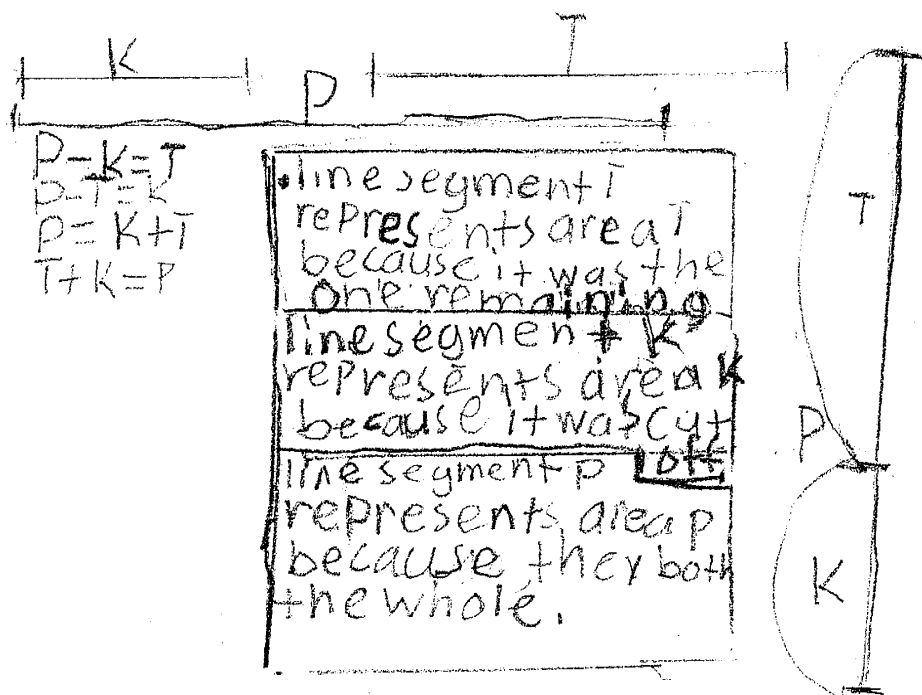 K
T
P
P-K=T
P-T=K
P=K+T
T+K=P
line segment T
represents area T
because it was the
one remaining
line segment K
represents area K
because it was cut
off
line segment p
represents area p
because they both
the whole.
T
P
K